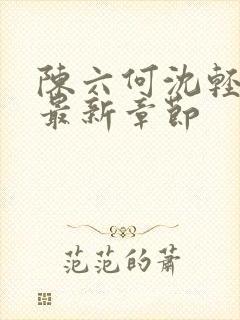 陳六何沈輕
最新章節
范范的蕭